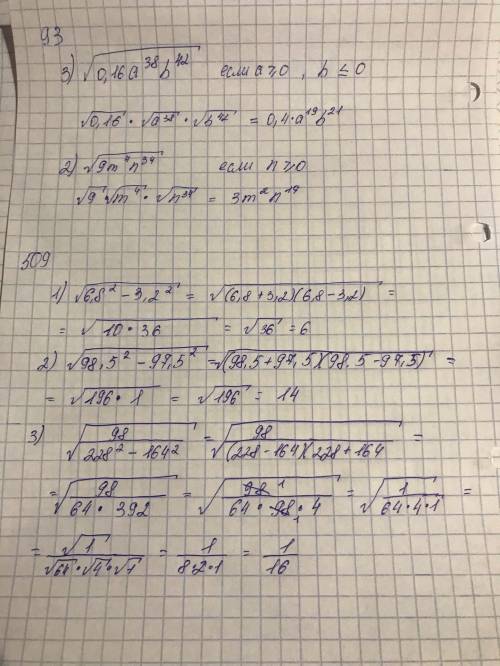 93
3) √0,16a³⁸b⁴² если a≥0, b ≤ 0
√0,16 · √a³⁸ · √b⁴² = 0,4·a¹⁹b²¹
2) √9m⁴n³⁴ если n≥0
√9 · √m⁴ · √n³⁴ = 3m²n¹⁷
509
1) √6,8² − 3,2² = √(6,8+3,2)(6,8−3,2) =
= √10·36 = √36 = 6
2) √98,5² − 97,5² = √(98,5+97,5)(98,5−97,5) =
= √196·1 = √196 = 14
3) √98/(228² − 164²) = √98/(228−164)(228+164 =
= √98/(64·392) = √98 1/(64·98 1·4) = √1/(64·4·1) =
= √1/(√64·√4·√1) = 1/(8·2·1) = 1/16